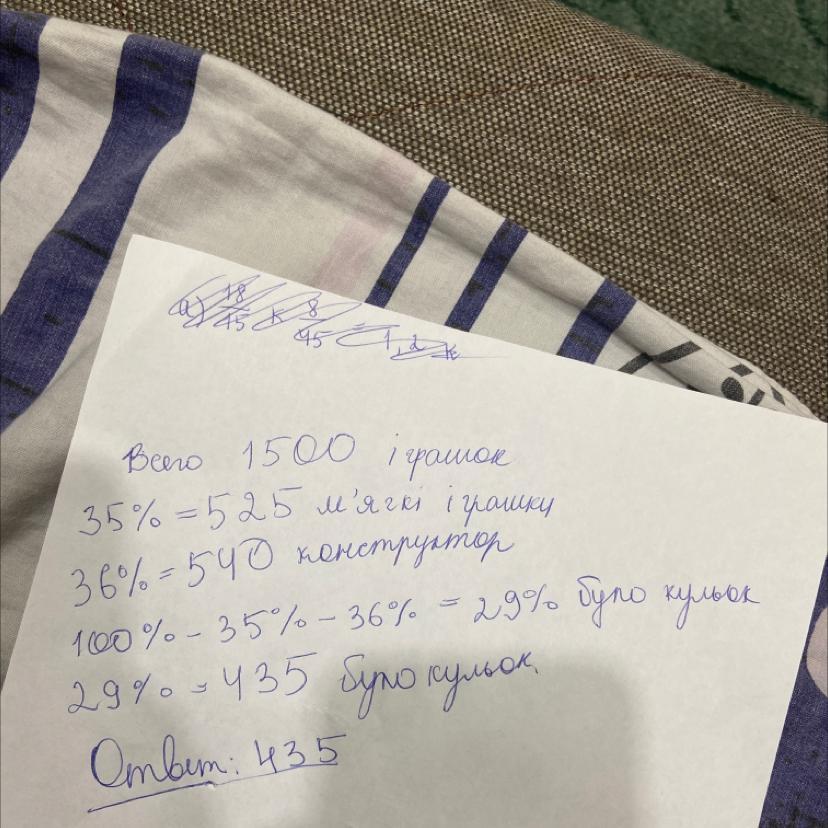 Всего 1500 іграшок
35% = 525 м'ягкі іграшки
36% = 540 конструктор
100% - 35% - 36% = 29% було кульок
29% = 435 було кульок
Ответ: 435